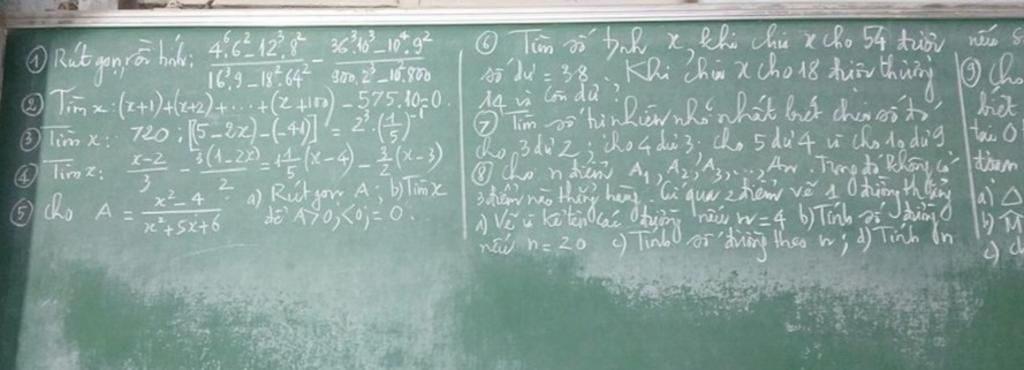 ① Rút gọn, rồi tính: (4⁶.6².12³.8²)/(16³.9 - 18².64²) - (36³.10³ - 10⁴.9²)/(900.2³ - 10².800)
② Tìm x: (x+1)+(x+2)+...+(x+100) - 575.10=0.
③ Tìm x: 720 : [(5-2x)-(-41)] = 2³.(1/5)⁻¹
④ Tìm x: (x-2)/3 - 3(1-2x)/2 = 1 1/5 (x-4) - 3/2 (x-3)
⑤ Cho A = (x²-4)/(x²+5x+6) a) Rút gọn A; b) Tìm x
để A>0; <0; =0.
⑥ Tìm số bịnh x, khi chia x cho 54 được
số dư = 38. Khi chia x cho 18 được thương
14 và còn dư;
⑦ Tìm số tự nhiên nhỏ nhất biết chia số đó
cho 3 dư 2; cho 4 dư 3; cho 5 dư 4 và cho 10 dư 9.
⑧ Cho n điểm A₁, A₂, A₃,..., An. Trong đó không có
3 điểm nào thẳng hàng. Cứ qua 2 điểm vẽ 1 đường thẳng
a) Vẽ và kể tên các đường nếu n=4 b) Tính số đường
nếu n=20 c) Tính số đường theo n; d) Tính n
nếu
⑨ Cho
biết
a) Δ
b)
c)